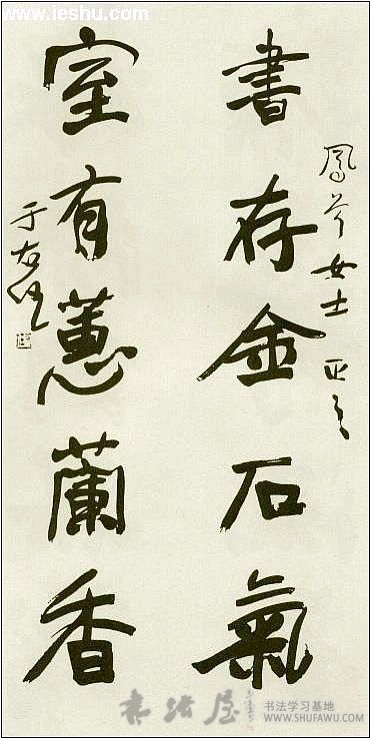 鳳 女士 正之
書存金石氣
室有蕙蘭香
于右任
www.ieshu.com
书法屋
书法学习基地
WWW.SHUFAWU.COM